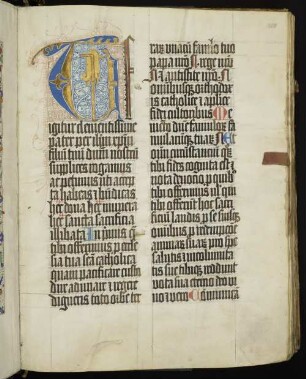 TE
igitur clementissime
pater per ihesum xpm
filium tuum dominum nostrum
supplices rogamus
ac petimus uti accepta
habeas et benedicas
hec dona hec munera
hec sancta sacrificia
illibata In primis que
tibi offerimus p ecclesia
tua sancta catholica
quam pacificare custo
dire adunare et regere
digneris toto orbe ter
rarum una cum famulo tuo
papa nostro N et rege nostro
N et antistite nostro N et
omnibus orthodoxis
atque catholice et aplice
fidei cultoribus Me
mento domine famulorum fa
mularumque tuarum N Et
omnium circumstantium quorum
tibi fides cognita est et
nota devotio pro quibus
tibi offerimus vel qui
tibi offerunt hoc sacri
ficium laudis p se suisque
omnibus p redemptione
animarum suarum pro spe
salutis et incolumita
tis sue tibique reddunt
vota sua eterno deo vi
vo et vero Communica